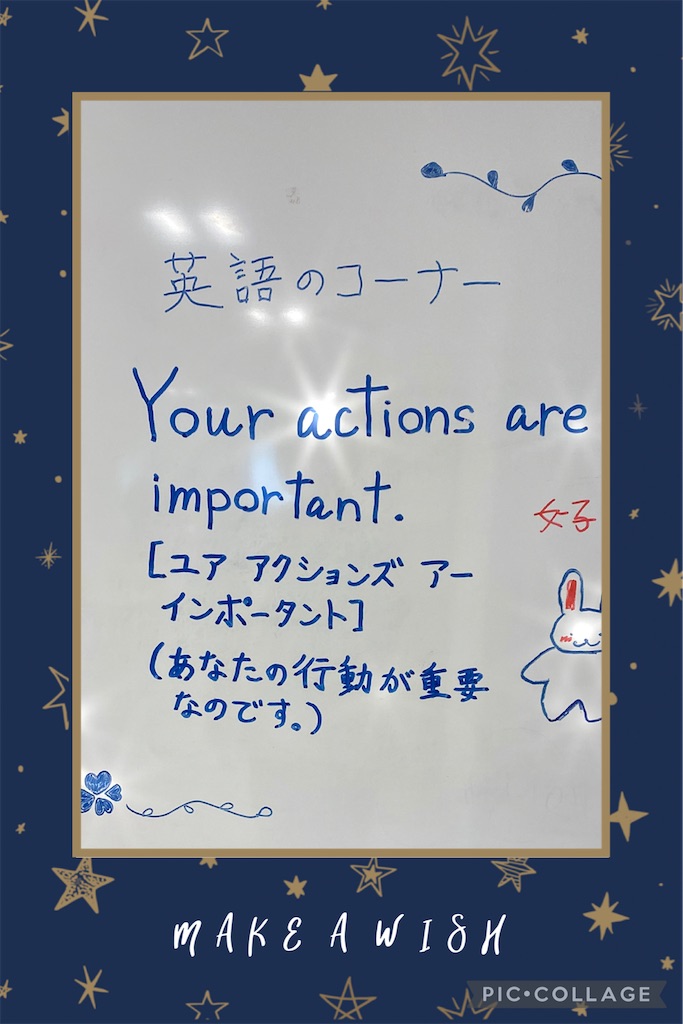 英語のコーナー
Your actions are
important.
女子
[ユア アクションズ アー
インポータント]
(あなたの行動が重要
なのです。)
MAKE A WISH
PIC•COLLAGE